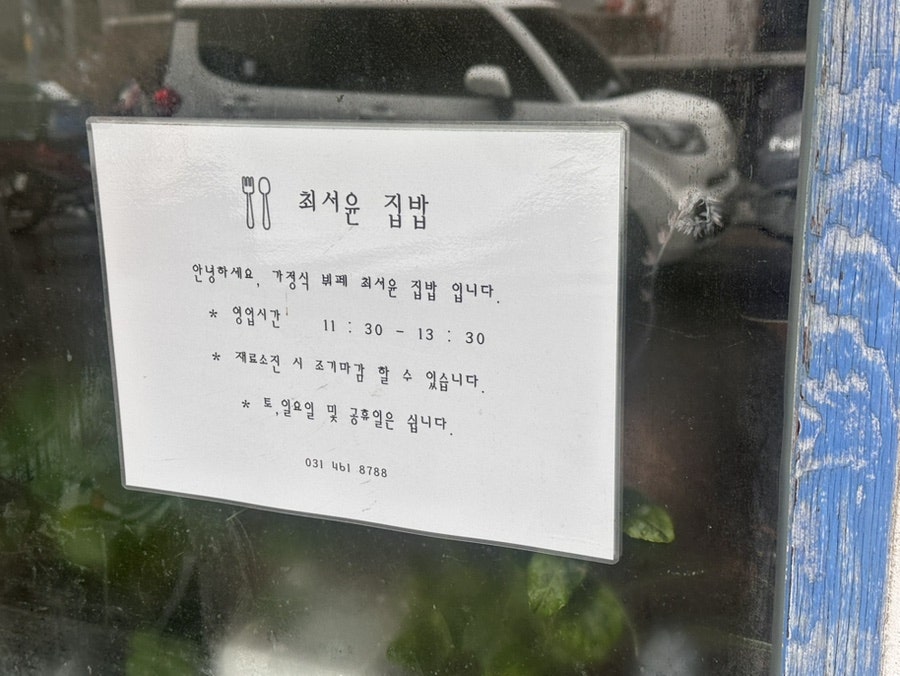 최서윤 집밥
안녕하세요, 가정식 뷔페 최서윤 집밥 입니다.
* 영업시간 11 : 30 - 13 : 30
* 재료소진 시 조기마감 할 수 있습니다.
* 토,일요일 및 공휴일은 쉽니다.
031 461 8788